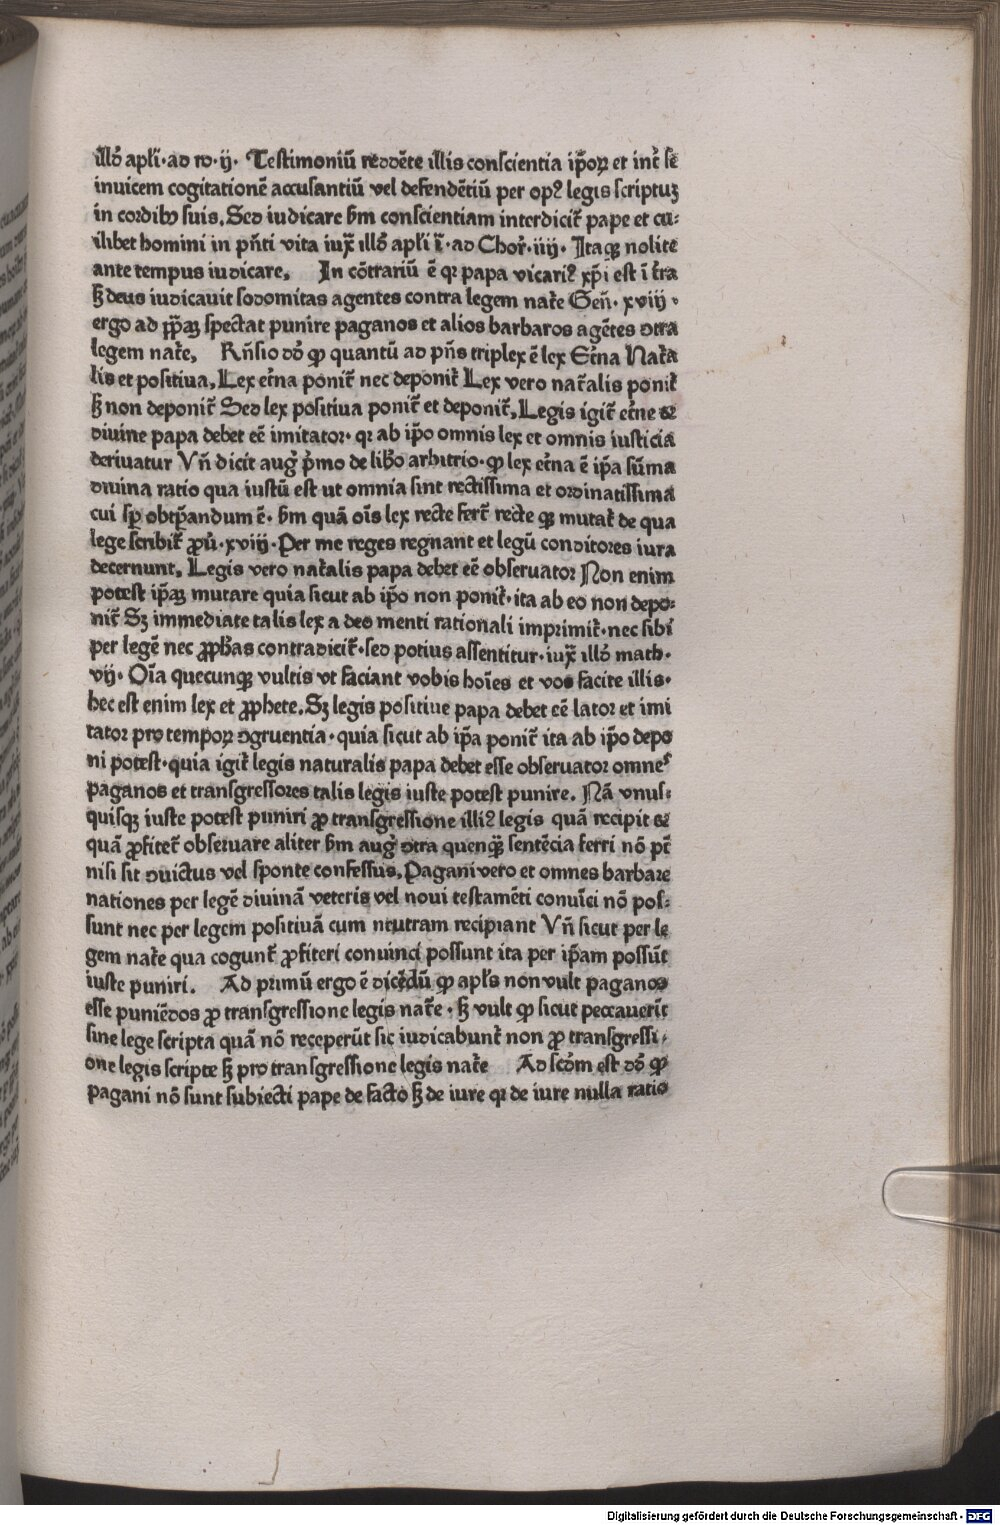 illō apłi·ad ro·ij· Testimoniū reddēte illis conscientia ip̄oꝝ et int̄ se
inuicem cogitationē accusantiū vel defendētiū per opꝰ legis scriptuꝫ
in cordibꝫ suis. Sed iudicare ẜm conscientiam interdicit̄ pape et cu:
ilibet homini in pn̄ti vita iux̄ illō apłi ī·ad Chor̄·iiij· Itaqꝫ nolite
ante tempus iudicare. In cōtrariū ē qꝛ papa vicariꝰ xp̄i est ī t̄ra
ꝫ deus iudicauit sodomitas agentes contra legem nat̄e Gen̄·xviij·
ergo ad ip̄aꝫ spectat punire paganos et alios barbaros agētes ꝯtra
legem nat̄e. Rn̄sio dō ꝙ quantū ad pn̄s triplex ē lex Et̄na Nat̄a
lis et positiua. Lex et̄na ponit̄ nec deponit̄ Lex vero nat̄alis ponit̄
ꝫ non deponit̄ Sed lex positiua ponit̄ et deponit̄. Legis igit̄ et̄ne ⁊
diuine papa debet eē imitator· qꝛ ab ip̄o omnis lex et omnis iusticia
deriuatur Vn̄ dicit auḡ p̄mo de lib̄o arbitrio·ꝙ lex et̄na ē ip̄a sūma
diuina ratio qua iustū est ut omnia sint rectissima et ordinatissima
cui sp̄ obtp̄andum ē· ẜm quā oīs lex recte fert̄ recte qꝫ mutat̄ de qua
lege scribit̄ ꝓū·xviij·Per me reges regnant et legū conditores iura
decernunt. Legis vero nat̄alis papa debet eē obseruator Non enim
potest ip̄aꝫ mutare quia sicut ab ip̄o non ponit̄·ita ab eo non depo:
nit̄ Sꝫ immediate talis lex a deo menti rationali imprimit̄·nec sibi
per legē nec ꝓph̄as contradicit̄·sed potius assentitur·iux̄ illō math·
vij· Oīa quecunqꝫ vultis vt faciant vobis hoīes et vos facite illis·
hec est enim lex et ꝓphete. Sꝫ legis positiue papa debet eē lator et imi
tator pro tempoꝝ ꝯgruentia·quia sicut ab ip̄a ponit̄ ita ab ip̄o depo
ni potest·quia igit̄ legis naturalis papa debet esse obseruator omnes
paganos et transgressores talis legis iuste potest punire. Nā vnus:
quisqꝫ iuste potest puniri ꝓ transgressione illiꝰ legis quā recipit ⁊
quā ꝓfitet̄ obseruare aliter ẜm auḡ ꝯtra quenqꝫ sentēcia ferri nō pt̄
nisi sit ꝯuictus vel sponte confessus. Pagani vero et omnes barbare
nationes per legē diuinā veteris vel noui testamēti conuīci nō pos:
sunt nec per legem positiuā cum neutram recipiant Vn̄ sicut per le
gem nat̄e qua cogunt̄ ꝓfiteri conuinci possunt ita per ip̄am possūt
iuste puniri. Ad primū ergo ē dicēdū ꝙ apłs non vult paganos
esse puniēdos ꝓ transgressione legis nat̄e·ꝫ vult ꝙ sicut peccauerūt
sine lege scripta quā nō receperūt sic iudicabunt̄ non ꝓ transgressi:
one legis scripte ꝫ pro transgressione legis nat̄e Ad scd̄m est dō ꝙ
pagani nō sunt subiecti pape de facto ꝫ de iure qꝛ de iure nulla ratio
Digitalisierung gefördert durch die Deutsche Forschungsgemeinschaft - DFG